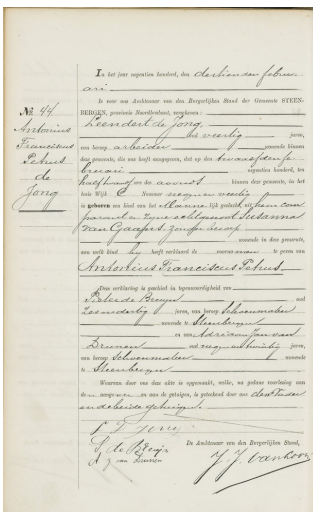 In het jaar negentien honderd, den dertienden februari
is voor ons Ambtenaar van den Burgerlijken Stand der Gemeente STEEN-
BERGEN, provincie Noordbrabant, verschenen:
Leendert de Jong
oud veertig jaren,
van beroep arbeider wonende binnen
deze gemeente, die ons heeft aangegeven, dat op den twaalfden fe-
bruari negentien honderd, ten
half twaalf ure des avonds binnen deze gemeente, in het
huis Wijk C Nommer negen en veertig
is geboren een kind van het Manne lijk geslacht, uit hem com-
parant en zijne echtgenoot Susanna
van Gaapert zonder beroep
wonende in deze gemeente,
aan welk kind hij heeft verklaard de voornamen te geven van
Antonius Franciscus Petrus
Deze verklaring is geschied in tegenwoordigheid van
Pieter de Bruyn oud
jaren, van beroep Schoenmaker
wonende te Steenbergen
en van Adriaan Jan van
Drunen oud negen en twintig jaren,
van beroep Schoenmaker wonende
te Steenbergen
Waarvan door ons deze akte is opgemaakt, welke, na gedane voorlezing aan
den aangever en aan de getuigen, is geteekend door ons den Vader
en de beide getuigen.
L d Jong
De Ambtenaar van den Burgerlijken Stand,
P de Bruijn
A J van Drunen
No. 44.
Antonius
Franciscus
Petrus
de
Jong